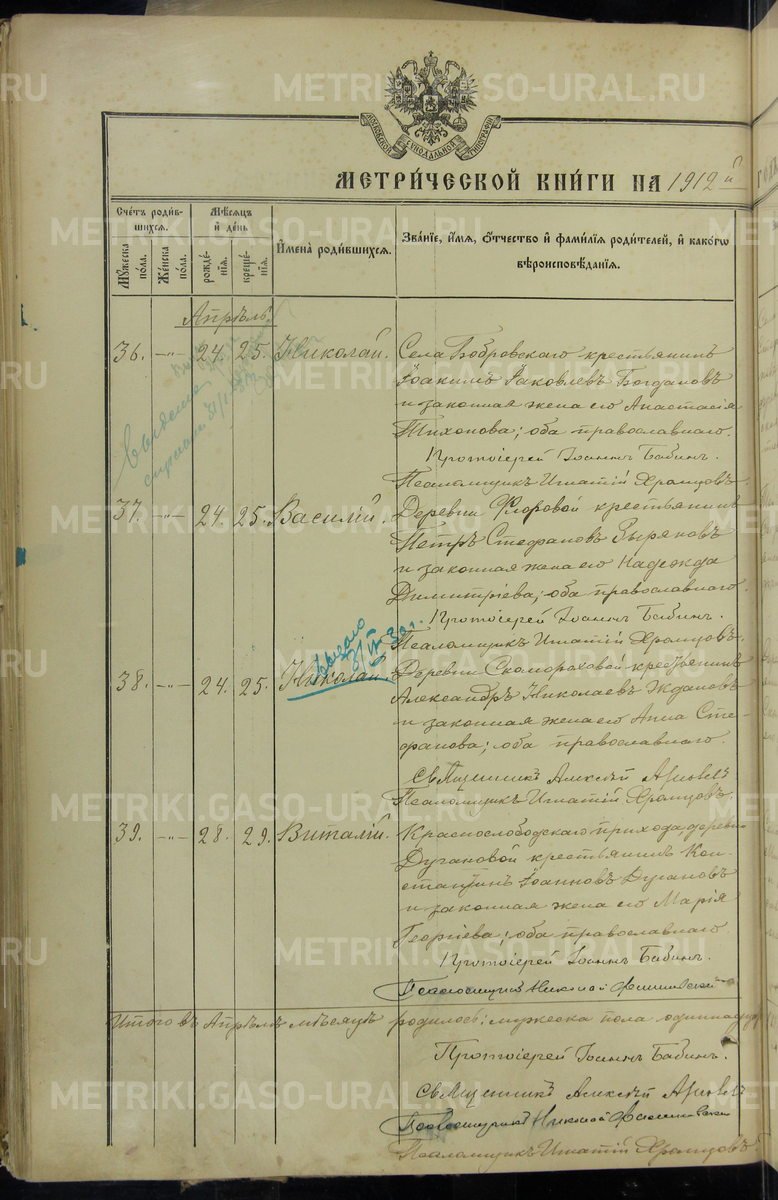 МОСКОВСКОЙ СѴНОДАЛЬНОЙ ТИПОГРАФІИ
МЕТРИ́ЧЕСКОЙ КНИ́ГИ НА 1912 й
Сче́тъ роди́в-
шихся.
Му́жеска по́ла.
Же́нска по́ла.
Мѣ́сяцъ
и҆ де́нь
рожде́нїя.
креще́нїя.
И҆мена̀ роди́вшихся.
Зва́нїе, и҆́мѧ, ѻ҆́тчество и҆ фами́лїѧ роди́телей, и҆ како́гѡ
вѣроисповѣ́данїѧ.
Апрѣль.
36. -"- 24. 25. Николай.
Села Бобровскаго крестьянинъ
Іоакимъ Яковлевъ Богдановъ
и законная жена его Анастасія
Тихонова; оба православнаго.
Протоіерей Іоаннъ Бабинъ.
Псаломщикъ Игнатій Храмцовъ.
37. -"- 24. 25. Василій.
Деревни Флоровой крестьянинъ
Петръ Стефановъ Зыряновъ
и законная жена его Надежда
Димитріева; оба православнаго.
Протоіерей Іоаннъ Бабинъ.
Псаломщикъ Игнатій Храмцовъ.
38. -"- 24. 25. Николай.
Деревни Скомороховой крестьянинъ
Александръ Николаевъ Ждановъ
и законная жена его Анна Сте-
фанова; оба православнаго.
Священникъ Алексѣй
Псаломщикъ Игнатій Храмцовъ.
39. -"- 28. 29. Виталій.
Краснослободскаго прихода деревни
Дугановой крестьянинъ Кон-
стантинъ Іоанновъ Дугановъ
и законная жена его Марія
Георгіева; оба православнаго.
Протоіерей Іоаннъ Бабинъ.
Псаломщикъ Николай
Итого въ Апрѣлѣ мѣсяцѣ родилось: мужеска пола
Протоіерей Іоаннъ Бабинъ.
Священникъ Алексѣй
Псаломщикъ Николай
Псаломщикъ Игнатій Храмцовъ
METRIKI.GASO-URAL.RU